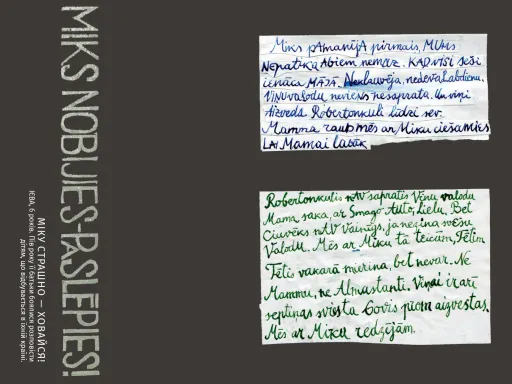 MIKS NOBIJIES-PASLĒPIES!
МІКУ СТРАШНО — ХОВАЙСЯ!
ІЄВА, 6 років. Пів року її батьки боялися розповісти
дітям, що відбувається в їхній країні.
Miks pAmanījA pirmais, MUMS
Nepatika Abiem nemaz. KAD viSi Seši
ienāca MĀJĀ. Neklauvēja, nedeva Labdienu.
Viņu valodu neviens nesaprata. Un viņi
Aizveda Robertonkuli līdzi sev.
Mamma raud mēs ar Miku ciešamies
LAI Mamai labāk
Robertonkulis nAV sapratis Viņu valodu
Mama saka, ar Smago Auto, lielu. Bet
Cilvēks nAV Vainīgs, ja nezina svešu
Valodu. Mēs ar Miku tā teicām, Tētim
Tētis vakarā mierina, bet nevar. Ne
Mammu, ne Almastanti. Viņai irari
septiņas sviesta Govis prom aizvestas.
Mēs ar Miku redzējām.